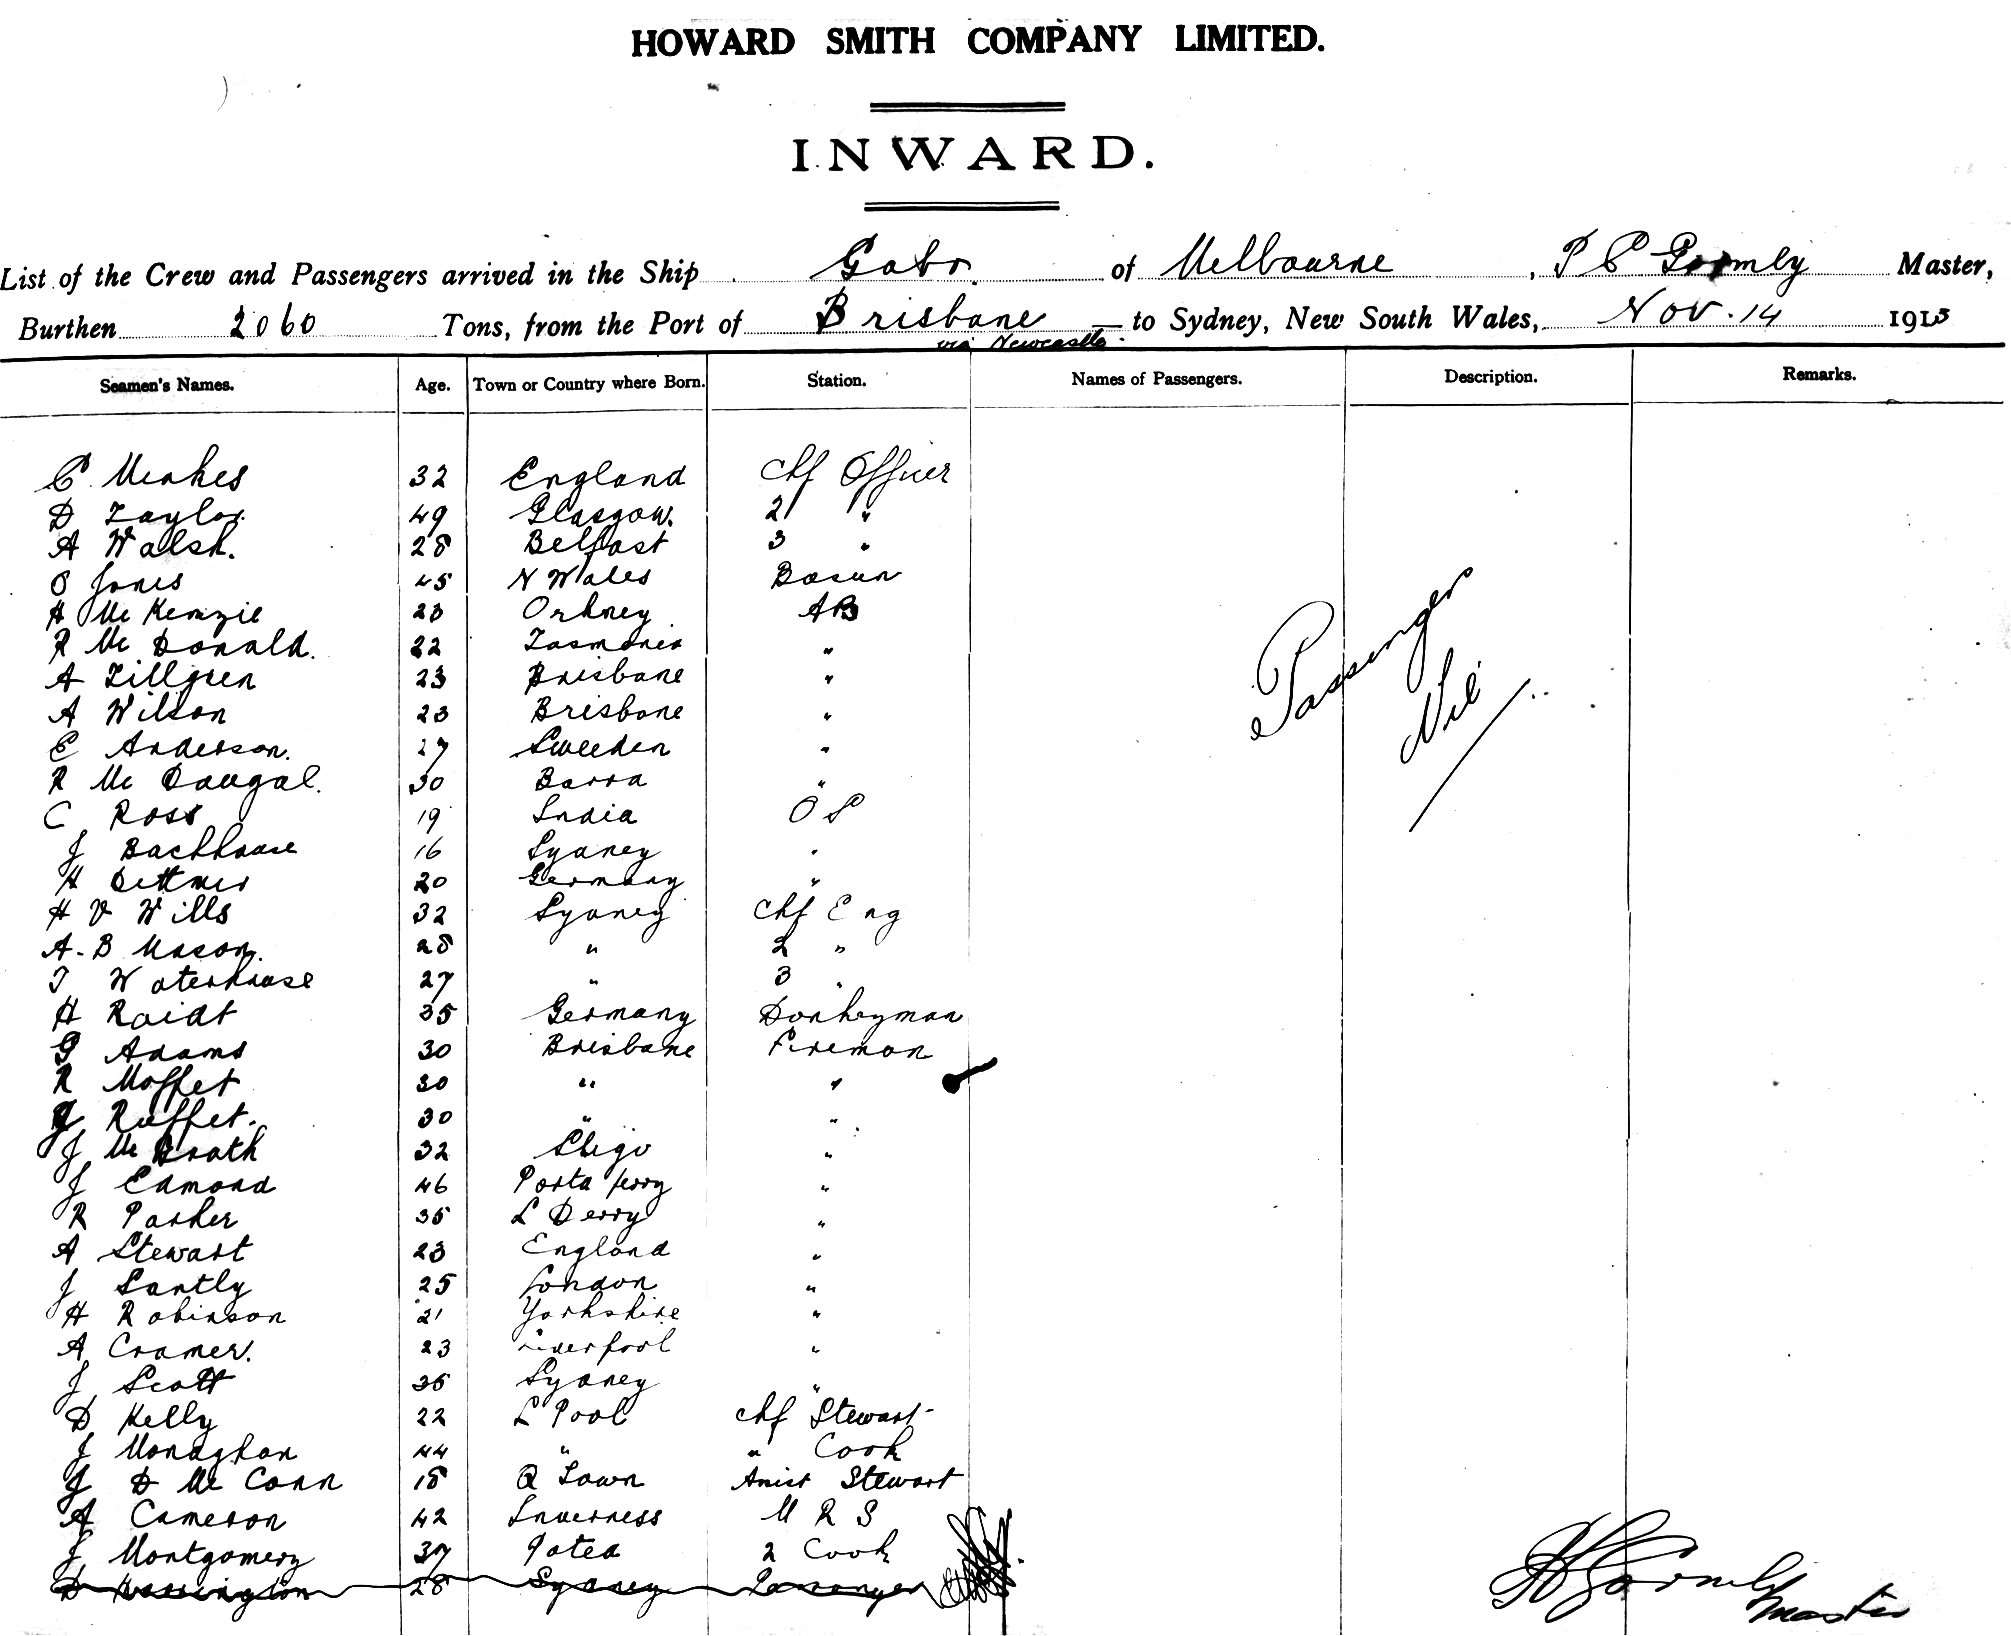 HOWARD SMITH COMPANY LIMITED.
INWARD.
List of the Crew and Passengers arrived in the Ship Gabo of Melbourne, P C Gormly Master,
Burthen 2060 Tons, from the Port of Brisbane to Sydney, New South Wales, Nov. 14 1913
via Newcastle
Seamen's Names. Age. Town or Country where Born. Station. Names of Passengers. Description. Remarks.
C 32 England Chf Officer
D Taylor 49 Glasgow. 2 "
A Walsh. 28 Belfast 3 "
O Jones 45 N Wales Bosun
H McKenzie 23 Orkney AB
R McDonald. 22 Tasmania "
A Tillgren 23 Brisbane "
A Wilson 23 Brisbane "
E Anderson. 27 Sweeden "
R McDougal. 30 Barra "
C Ross 19 India O S
J Backhouse 16 Sydney "
H Dettmer 20 Germany "
H V Wills 32 Sydney Chf Eng
A. B Mason. 28 " 2 "
T Waterhouse 27 " 3 "
H Raidt 35 Germany Donkeyman
G Adams 30 Brisbane Fireman
R Moffet 30 " "
J Ruffet. 30 " "
J McGrath 32 Sligo "
J Edmond 46 Porta ferry "
R Parker 35 L Derry "
A Stewart 23 England "
J Santly 25 London "
H Robinson 21 Yorkshire "
A Cramer. 23 Liverpool "
J Scott 35 Sydney "
D Kelly 22 L Pool Chf Stewart
J Monaghan 44 " " Cook
J D McCann 18 Q Town Assist Stewart
A Cameron 42 Inverness M R S
J Montgomery 37 Patea 2 Cook
D Harrington 28 Sydney Passenger
Passengers
Nil
Gormly
Master